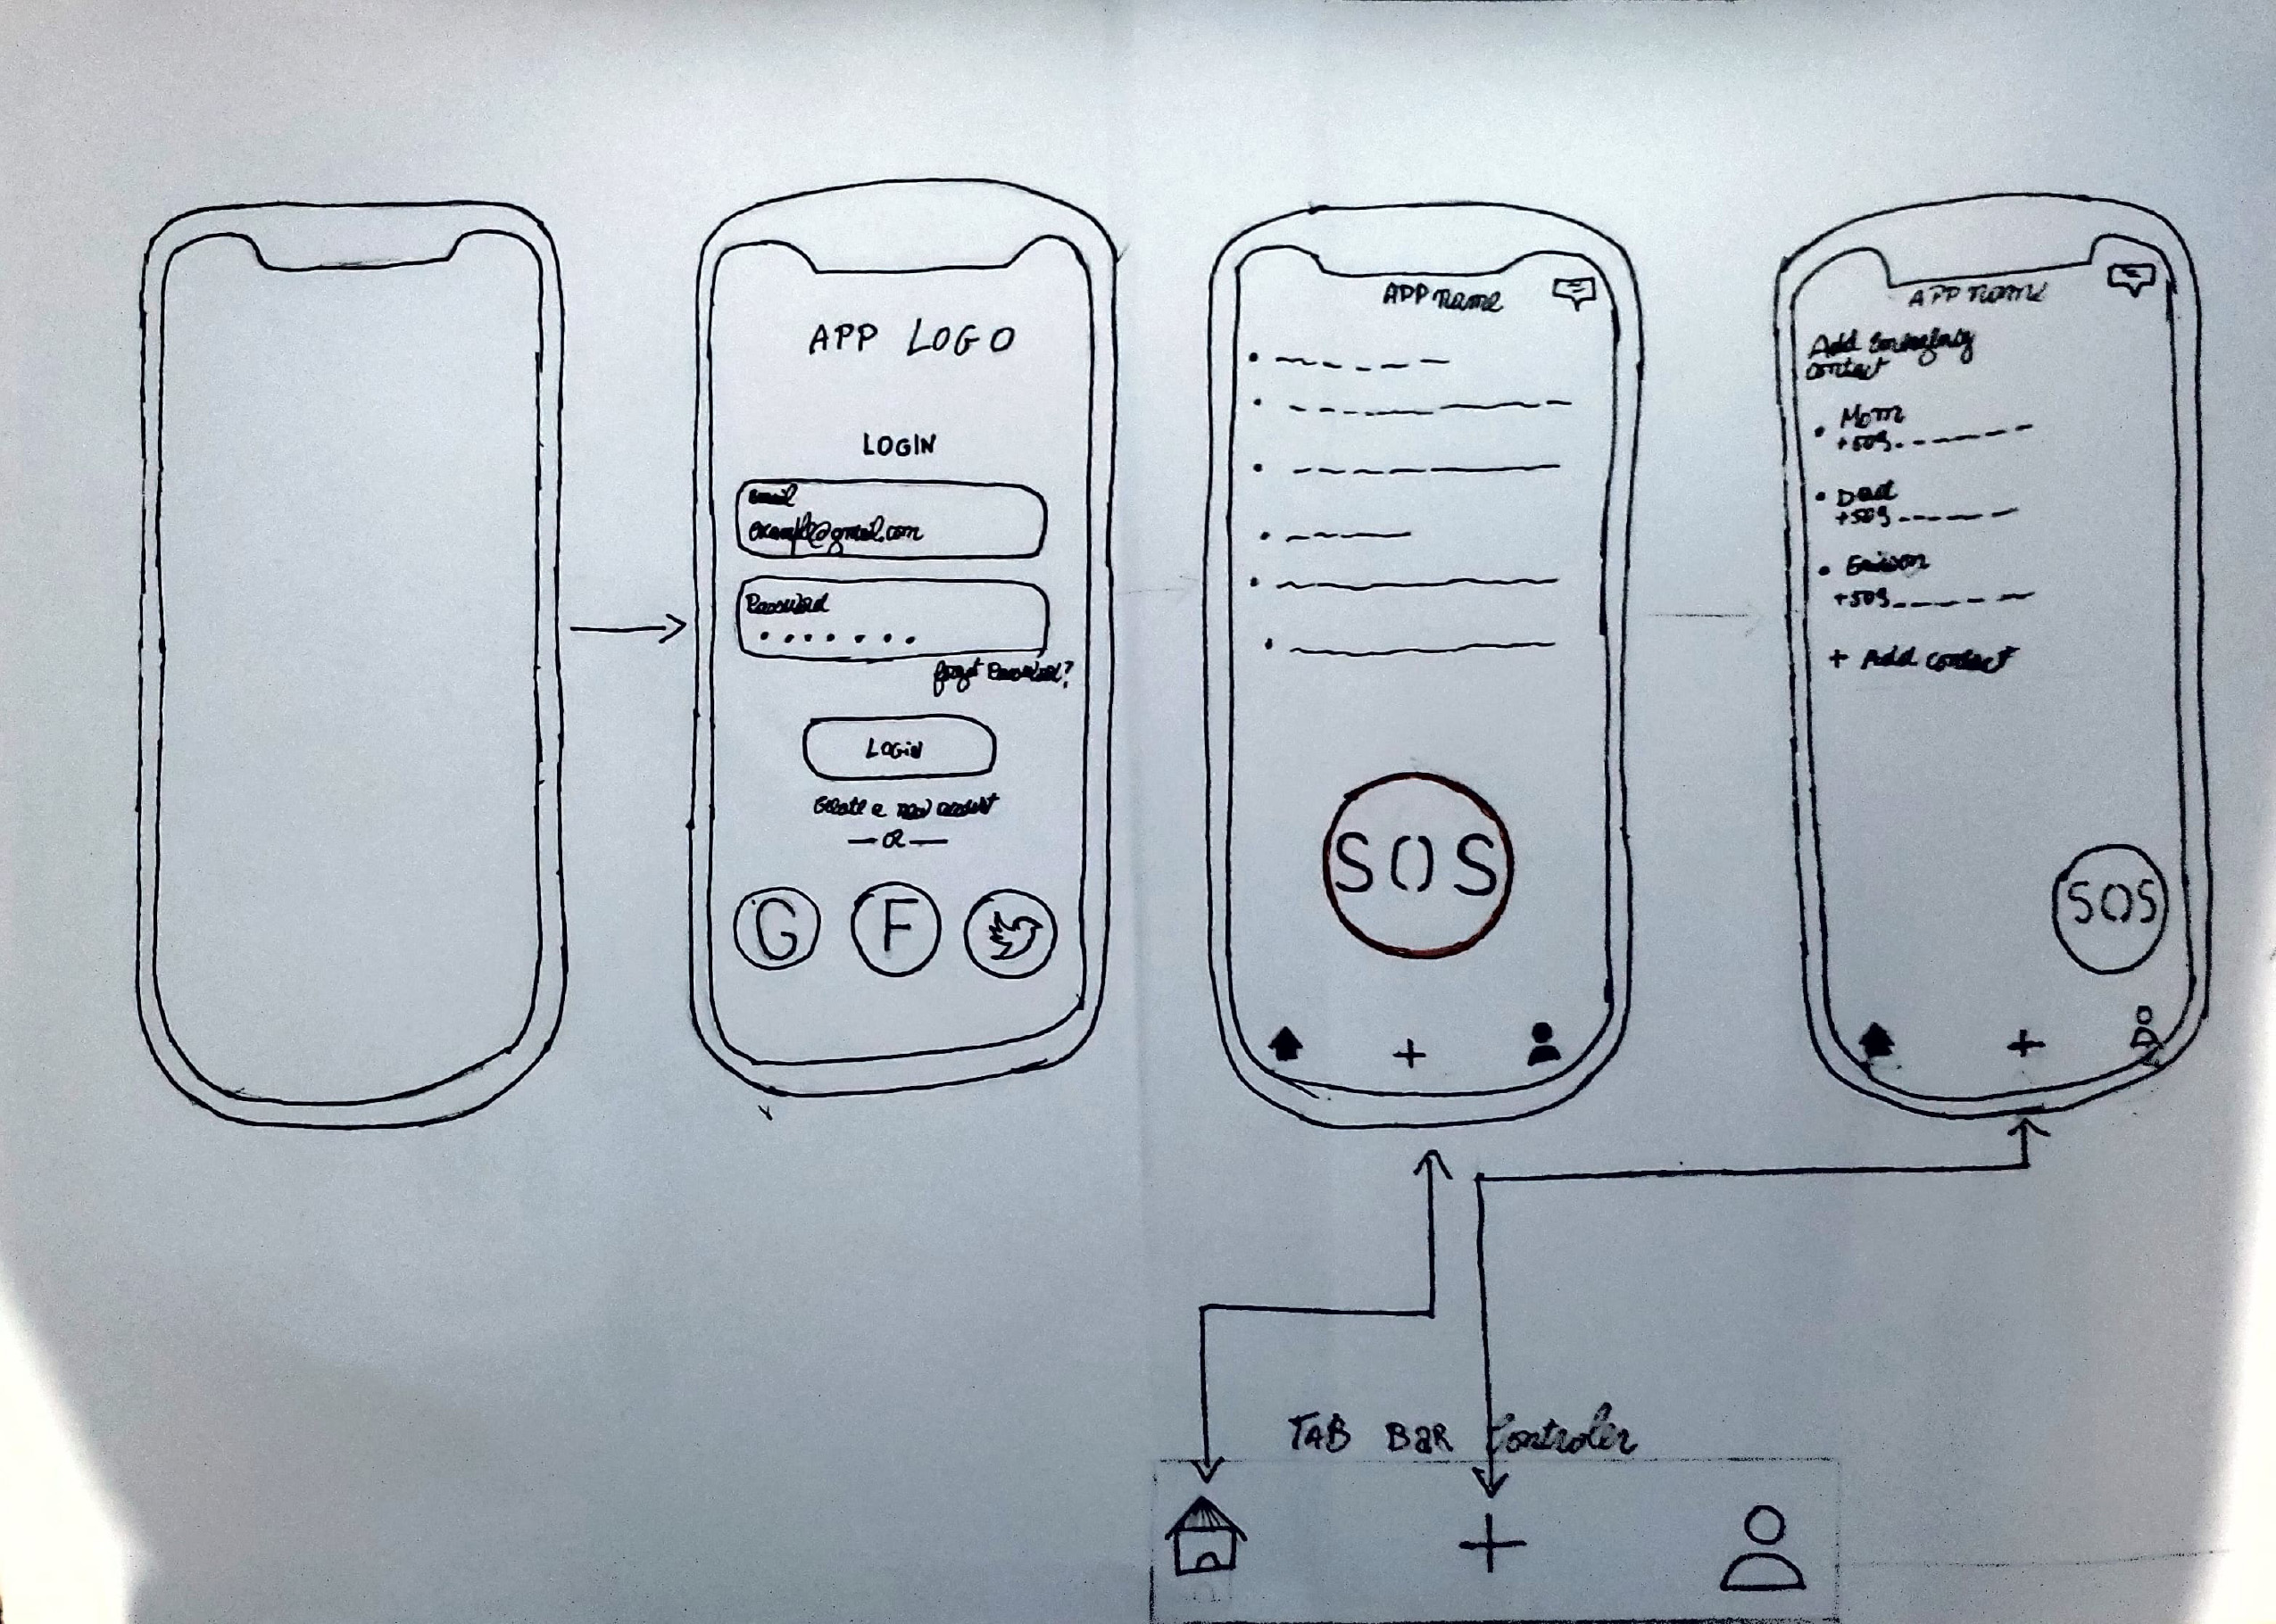 APP LOGO
LOGIN
Email
example@gmail.com
Password
forgot Password?
LOGiN
Create a new account
OR
G F
APP Name
SOS
APP NAME
Add Emergency
contact
Mom
+509
Dad
+509
+509
+ Add contact
SOS
TAB BaR Controler